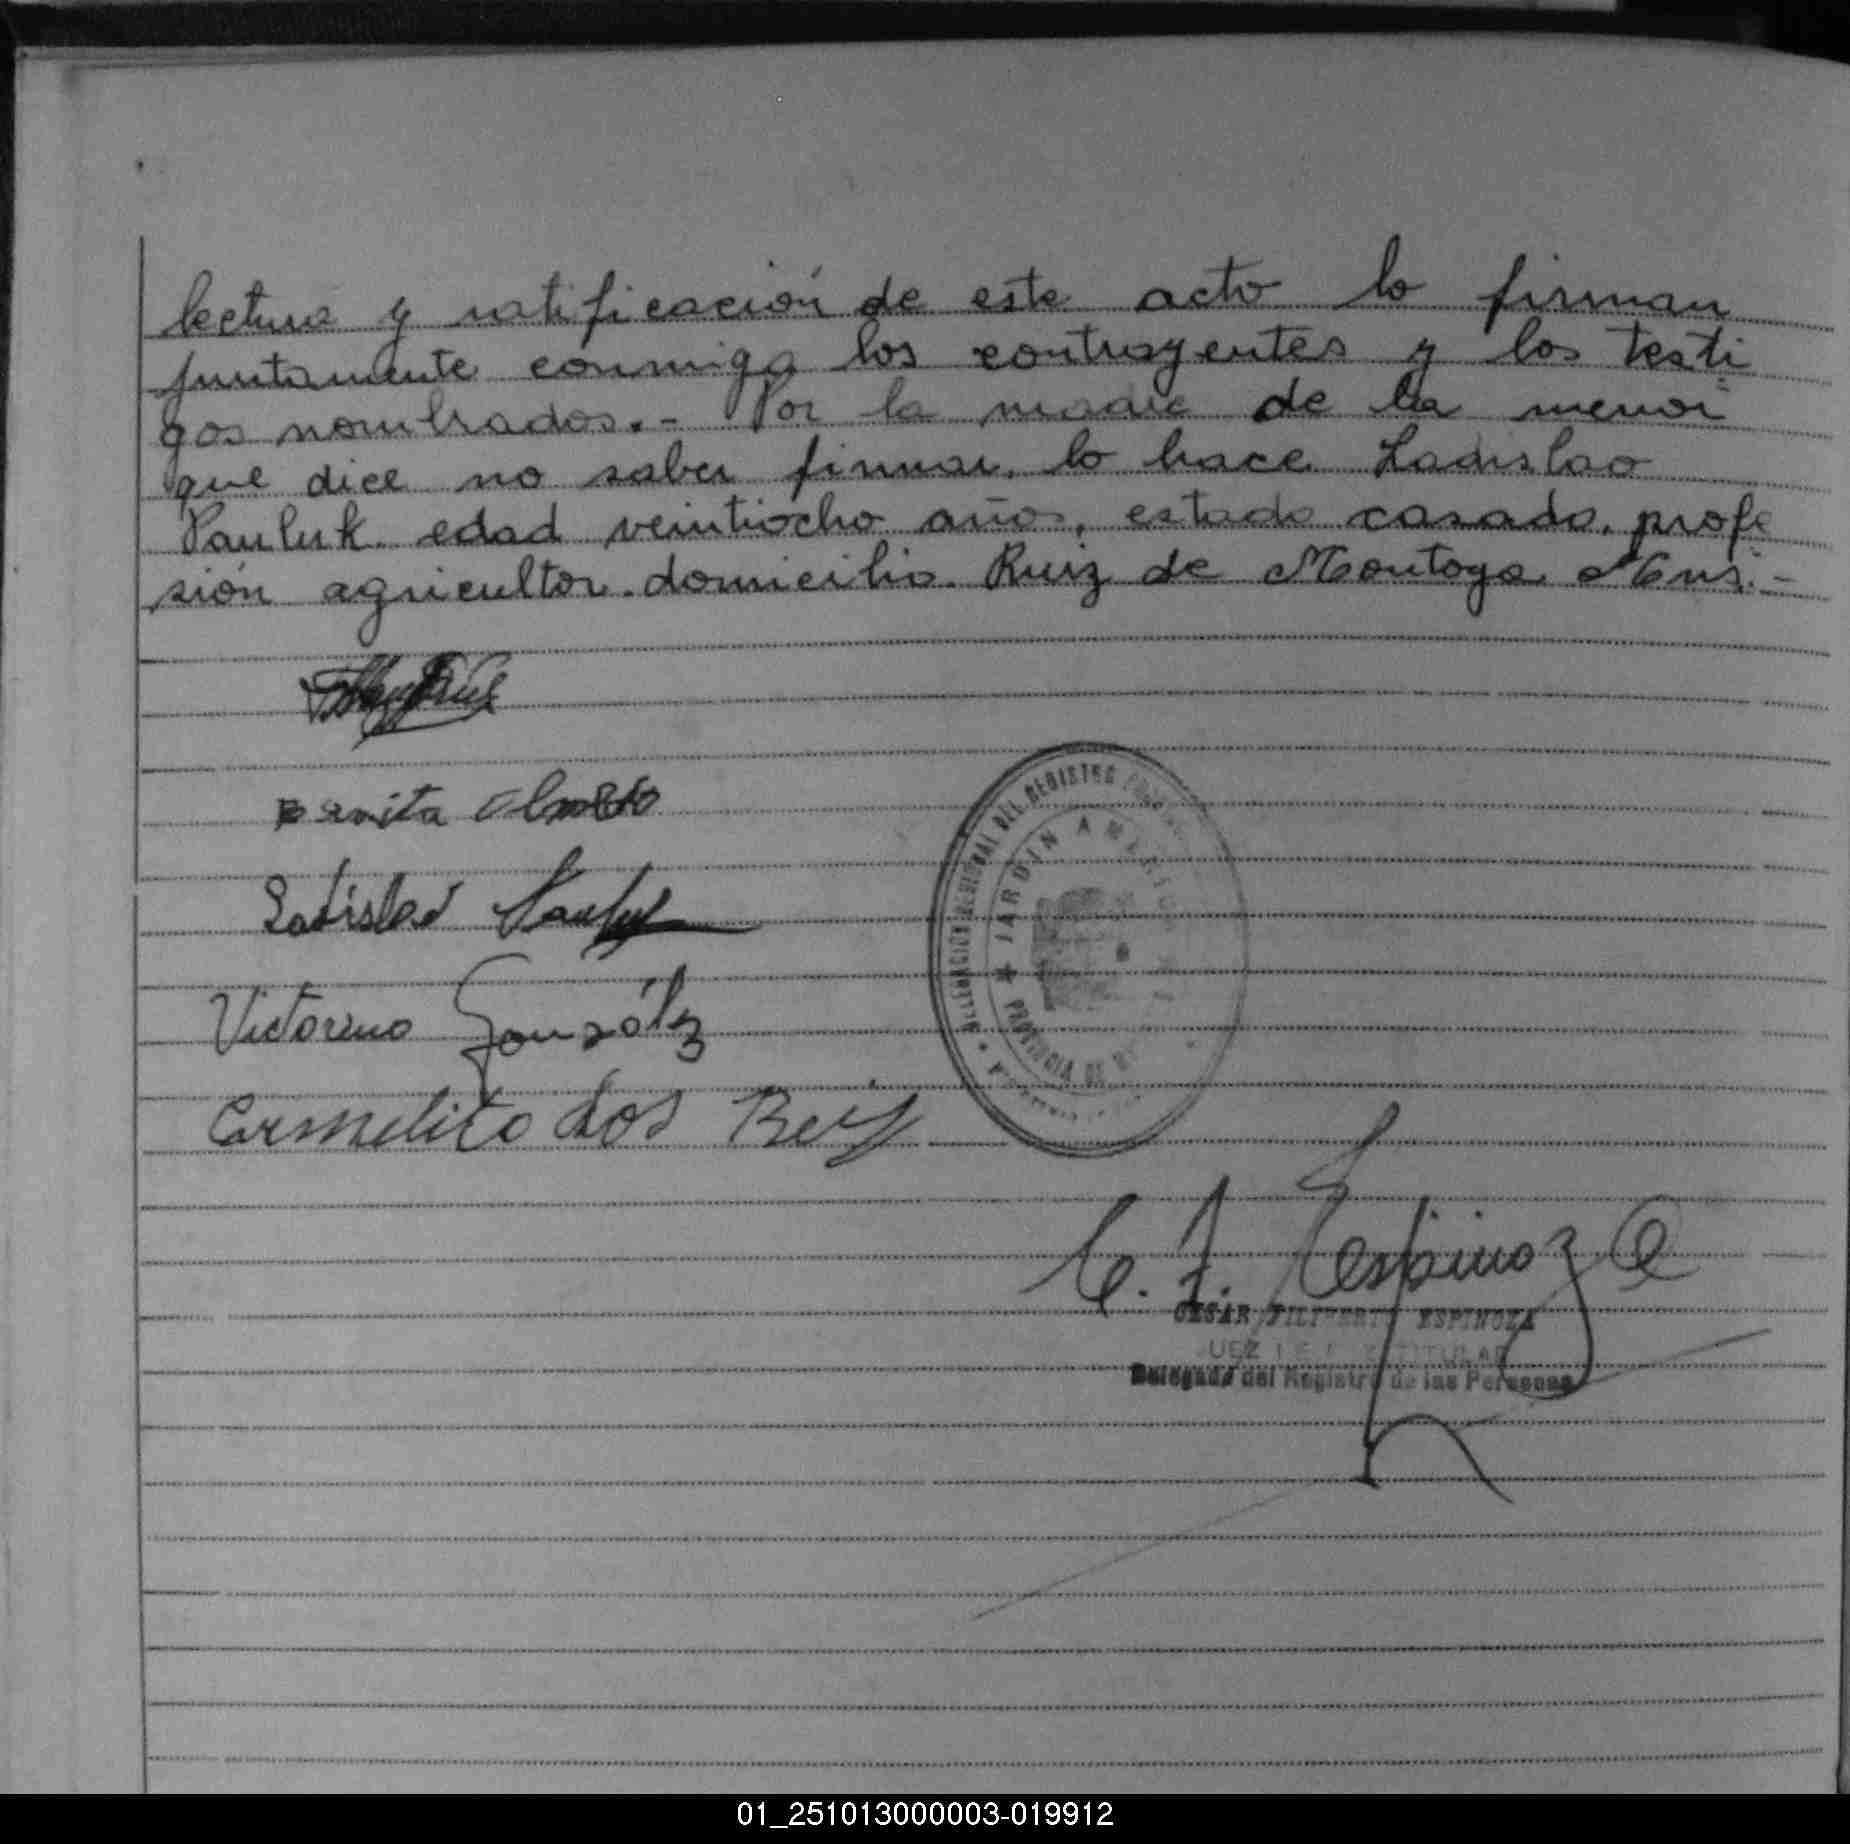 lectura y ratificación de este acto lo firman
juntamente conmigo los contrayentes y los testi
gos nombrados.- Por la madre de la menor
que dice no saber firmar, lo hace Ladislao
Pauluk edad veintiocho años, estado casado, profe
sión agricultor. domicilio. Ruiz de Montoya. Mns.-
Ladislao Pauluk
Victorino González
Carmelito dos Reis
JARDIN AMERICA
PROVINCIA DE
C. F. Espinoza
CESAR FILIBERTO ESPINOZA
JUEZ TITULAR
Delegado del Registro de las Personas
01_251013000003-019912